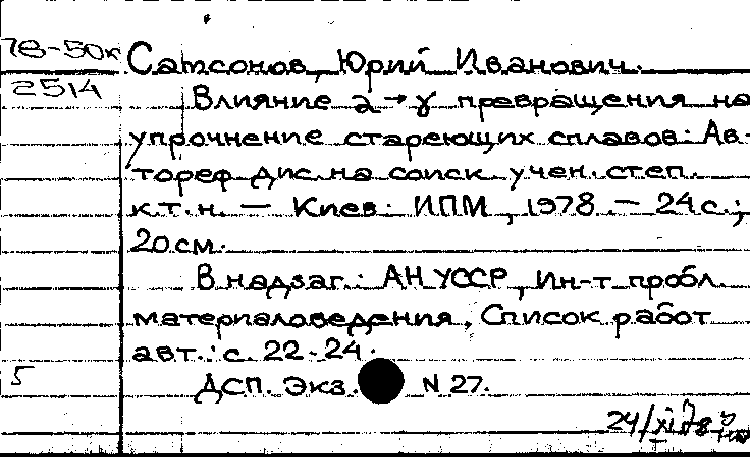 78-50к
2514
Сатсонов, Юрий Иванович.
Влияние α→γ превращения на
упрочнение стареющих сплавов: Ав-
тореф дис. на соиск. учен. степ.
к.т.н. — Киев: ИПМ, 1978. — 24 с.;
20 см.
В надзаг.: АН УССР, Ин-т пробл.
материаловедения, Список работ
авт.: с. 22-24.
5
ДСП. Экз. N 27.
24/XI 78